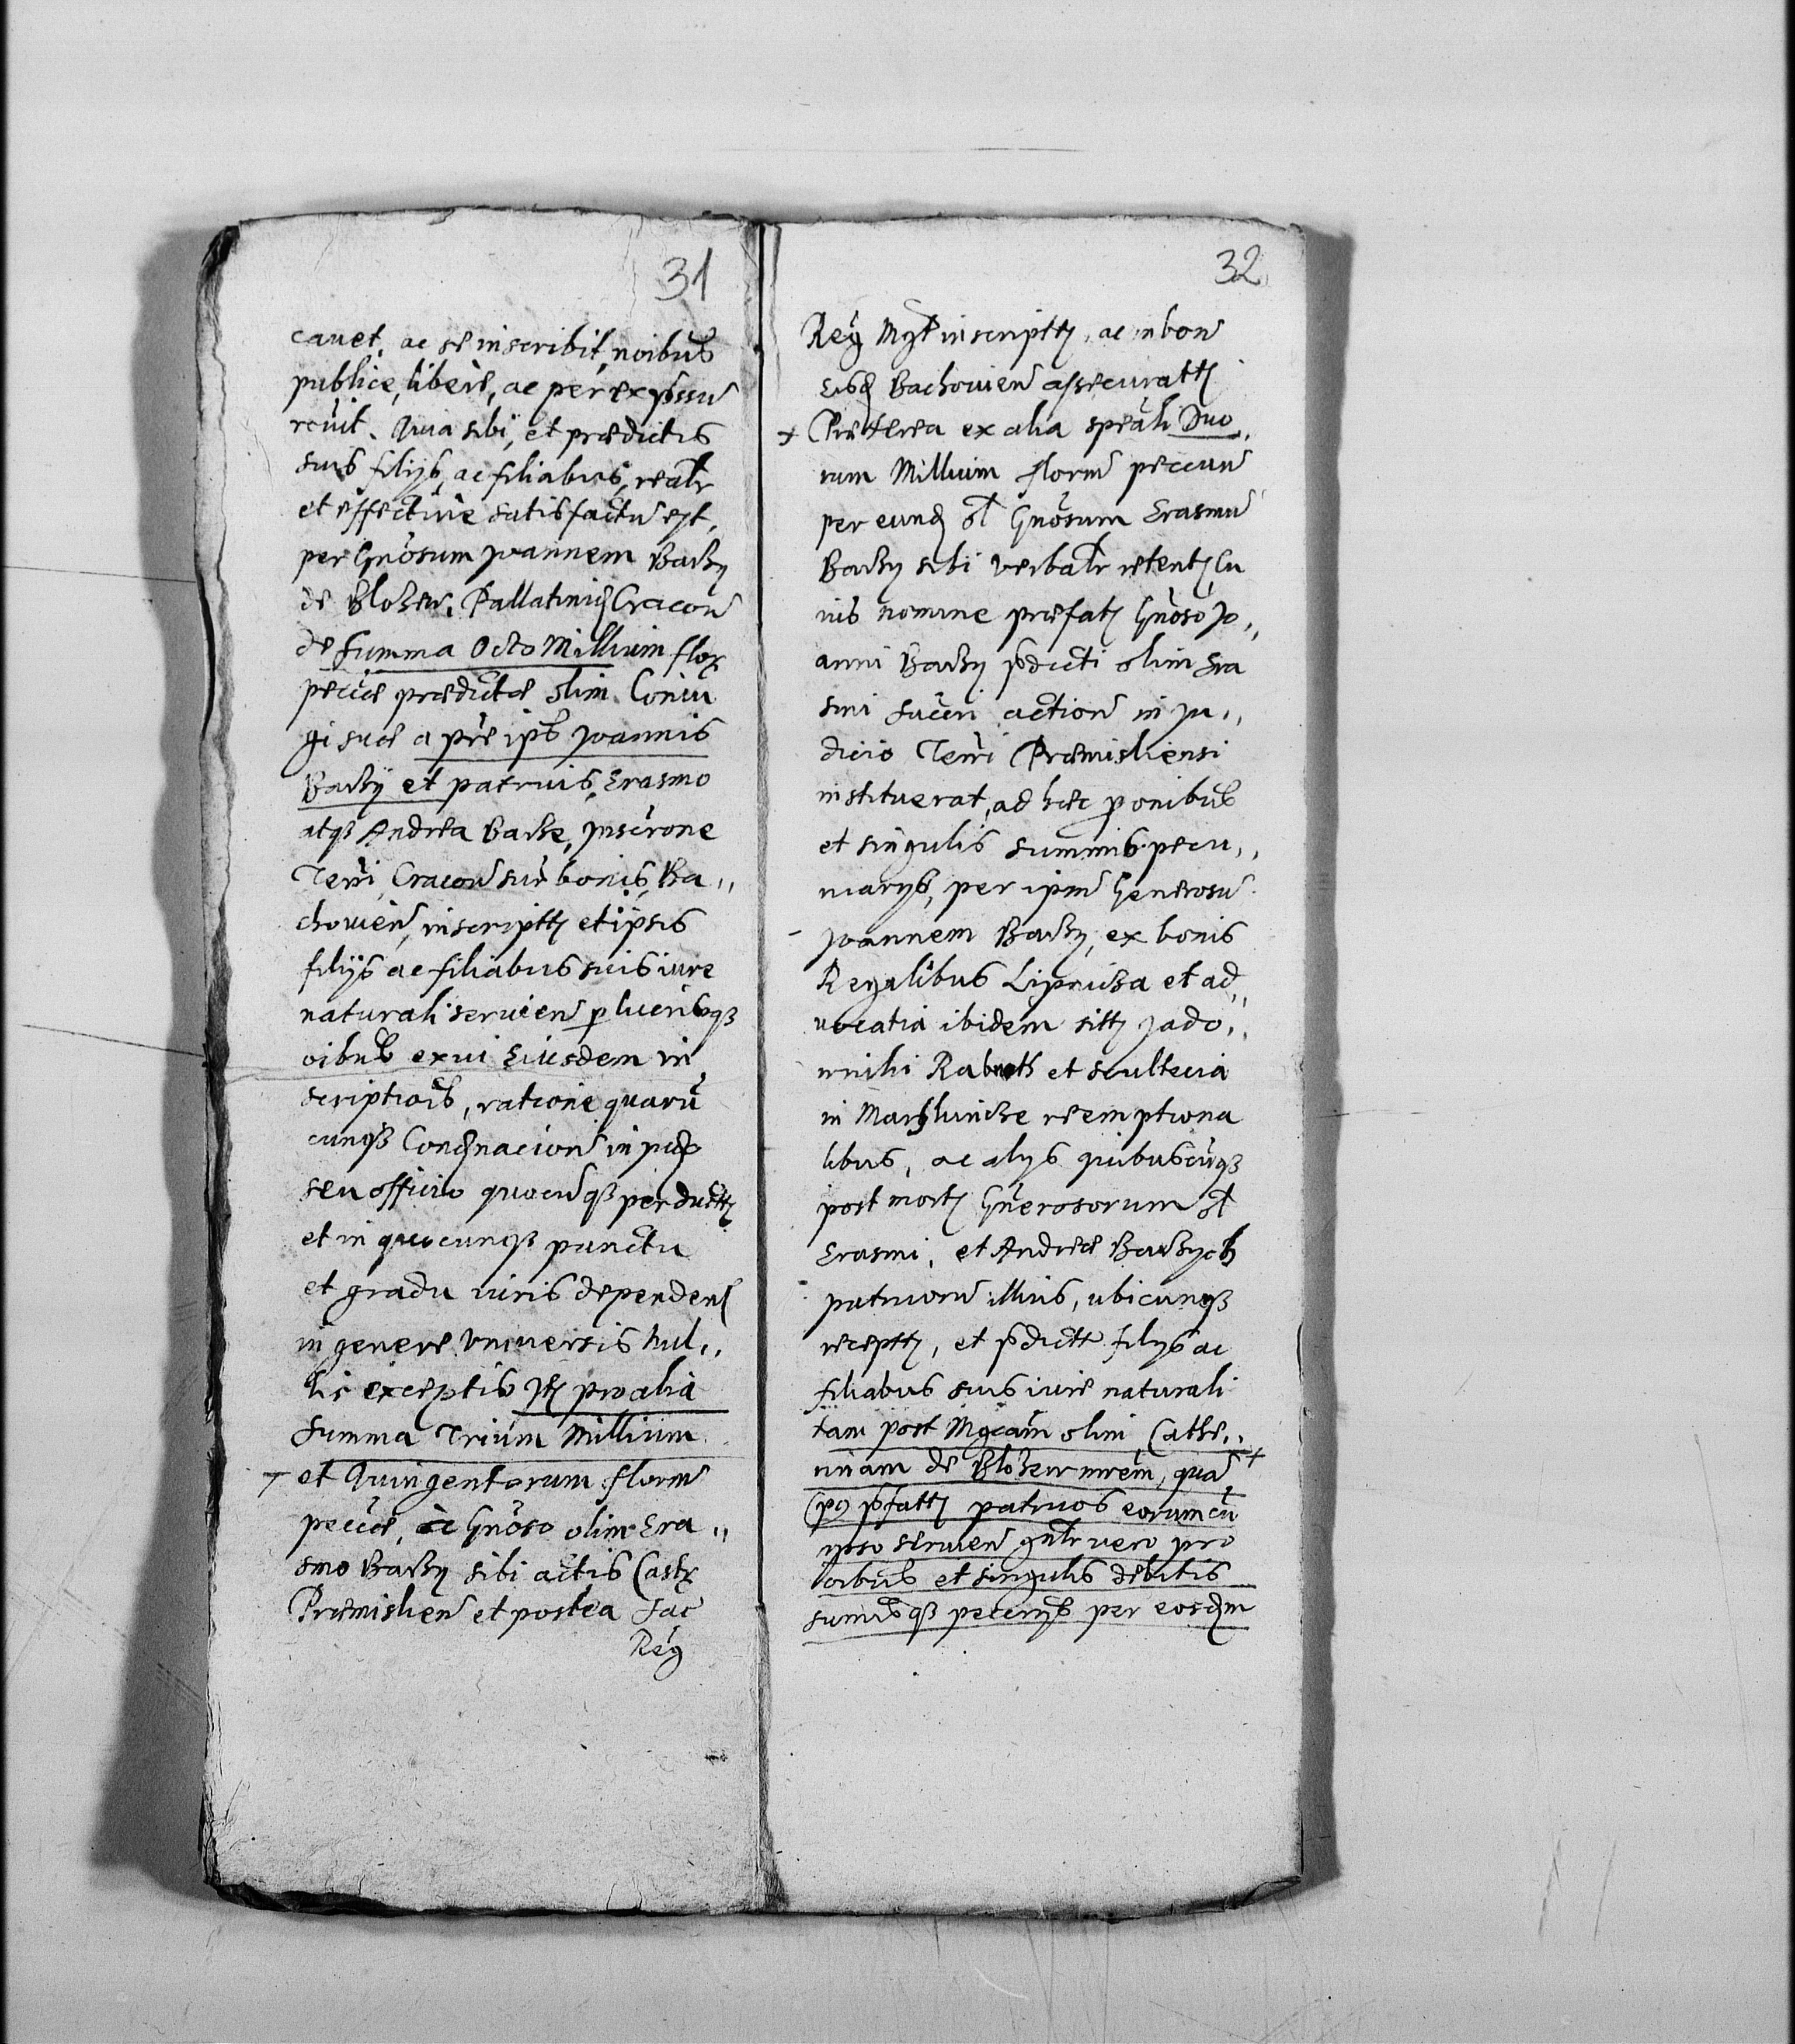 31
cauet, ac se inscribit, noibus
publice, libere, ac per expssu
rcuit. Quia sibi, et prædictis
suis filijs, ac filiabus, realr
et effectiue satisfactu est,
per Gnosum Joannem Barßy
de Błoẑew, Pallatinid Cracou
de Summa Octo Millium flor
pecuæ prædictæ olim Coniu
gi suæ a pre ips Joannis
Barßÿ et patruis, Erasmo
atqß Andrea Barße, Inscrone
Terri Cracou sup bonis, Ba„
chouien, inscriptt et ipsis
filijs ac filiabus suis iure
naturali seruien p lucrisqß
oibus ex ui Eiusdem in
scriptiois, ratione quaru
cunqß Condnacion in judo
seu officio quocuqß perductt
et in quocunqß punctu
et gradu iuris dependen
in genere vniuersis nul„
lis exceptis Jt pro alia
Summa Trium Millium
et Quingentorum florm
pecuæ, a Gnoso olim Era„
smo Barßy sibi actis Castr
Præmislien et postea Sac
Reg
32
Reg Mgt inscriptt, ac in bon
eisd Bachouien assecuratt
+ Præterea ex alia speali Duo„
rum Millium florm peccun
per eund ol Gnosum Erasmu
Barßy sibi verbalr retent, Cu
ius nomine præfat Gnoso Jo„
anni Barßy pdicti olim Era
smi Succri action in Ju„
dicio Terri Præmisliensi
instituerat, ad hæc p onibus
et singulis summis pecu„
niarijs, per ipm Generosu
Joannem Barßy, ex bonis
Regalibus Lipnicza et ad„
uocatia ibidem sitt Jado„
wnihi Rabroth et scultecia
in Marßlunicze reemptiona
libus, ac alijs quibuscuqß
post mort Gnerosorum ol
Erasmi, et Andreæ Barßych
patruoru illius, ubicunqß
receptt, et pdictt filijs ac
filiabus suis iure naturali
tam post Mgcam olim Cathe„
rinam de Błoẑew mrem, qua +
(po) pfatt patruos eorum cu
ipso seruien gnlr vero pro
oibus et singulis debitis
sumisqß peccnijs per eosdm